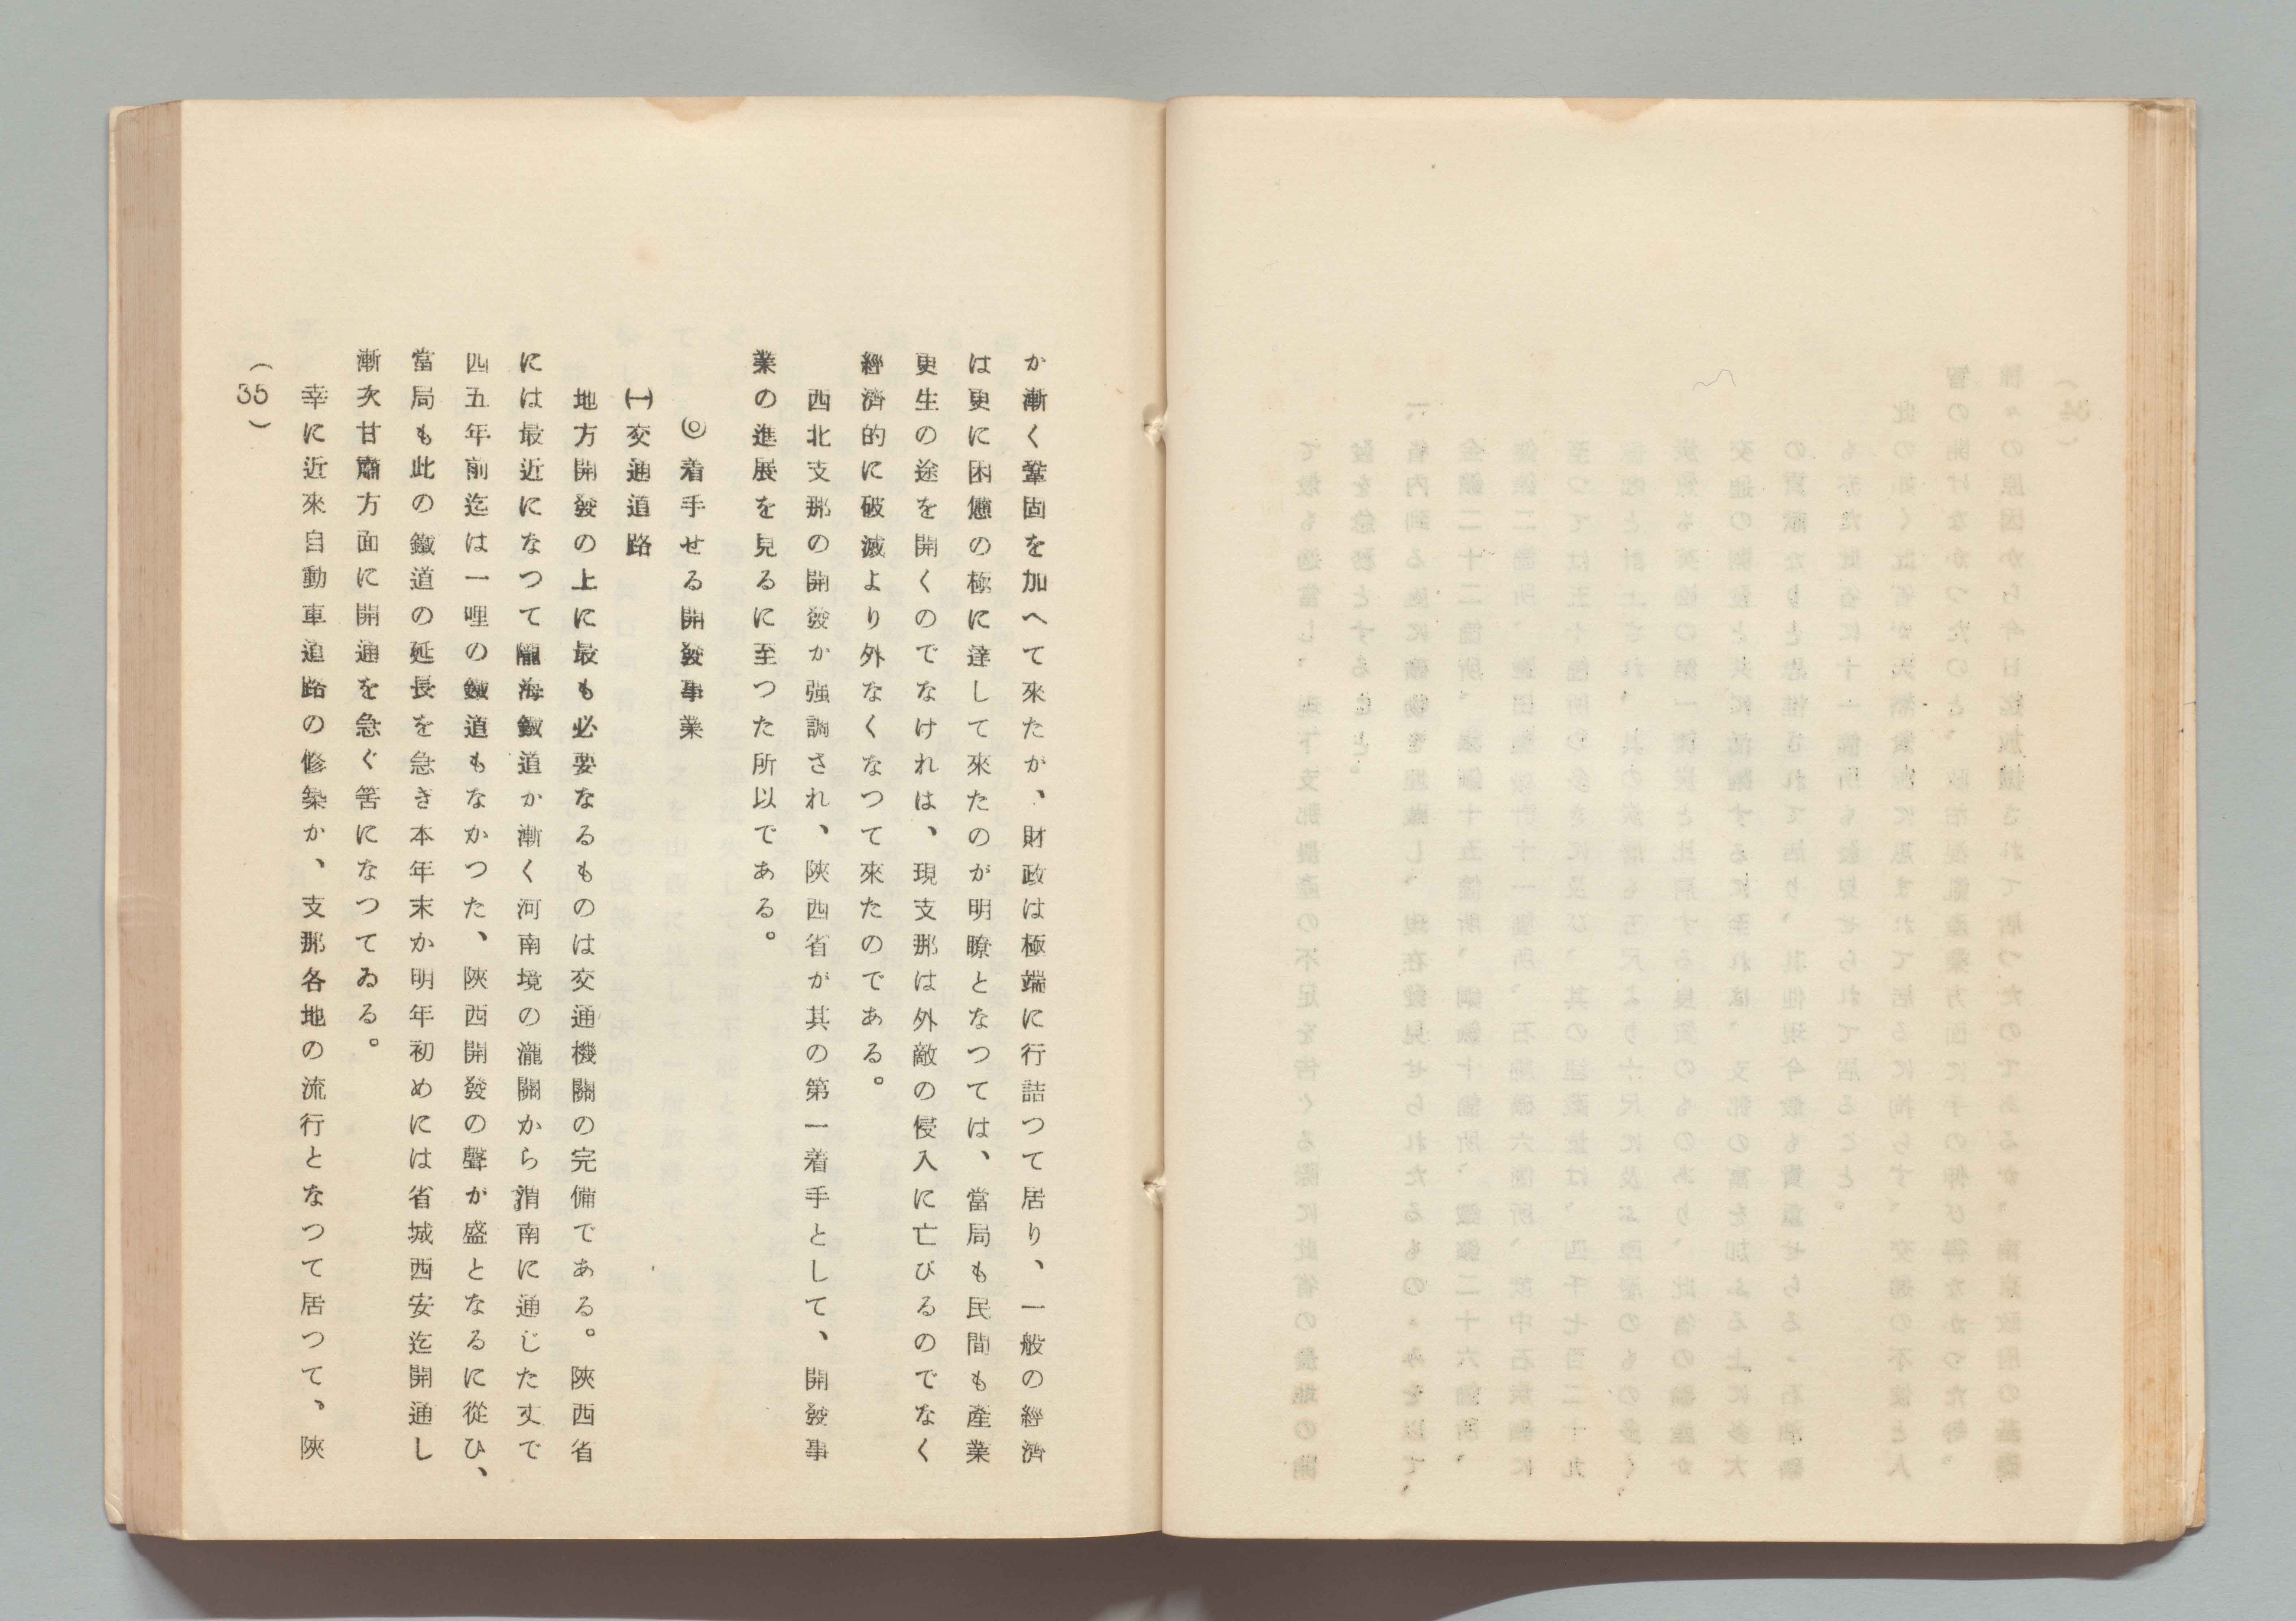 か漸く鞏固を加へて來たが、財政は極端に行詰つて居り、一般の經濟
は更に困憊の極に達して來たのが明瞭となつては、當局も民間も產業
更生の途を開くのでなけれは、現支那は外敵の侵入に亡びるのでなく
經濟的に破滅より外なくなつて來たのである。
西北支那の開發か強調され、陝西省が其の第一着手として、開發事
業の進展を見るに至つた所以である。
◎着手せる開發事業
㈠交通道路
地方開發の上に最も必要なるものは交通機關の完備である。陝西省
には最近になつて隴海鐵道か漸く河南境の潼關から渭南に通じた丈で
四五年前迄は一哩の鐵道もなかつた、陝西開發の聲が盛となるに從ひ、
當局も此の鐵道の延長を急ぎ本年末か明年初めには省城西安迄開通し
漸次甘肅方面に開通を急ぐ筈になつてゐる。
幸に近來自動車道路の修築か、支那各地の流行となつて居つて、陝
(35)